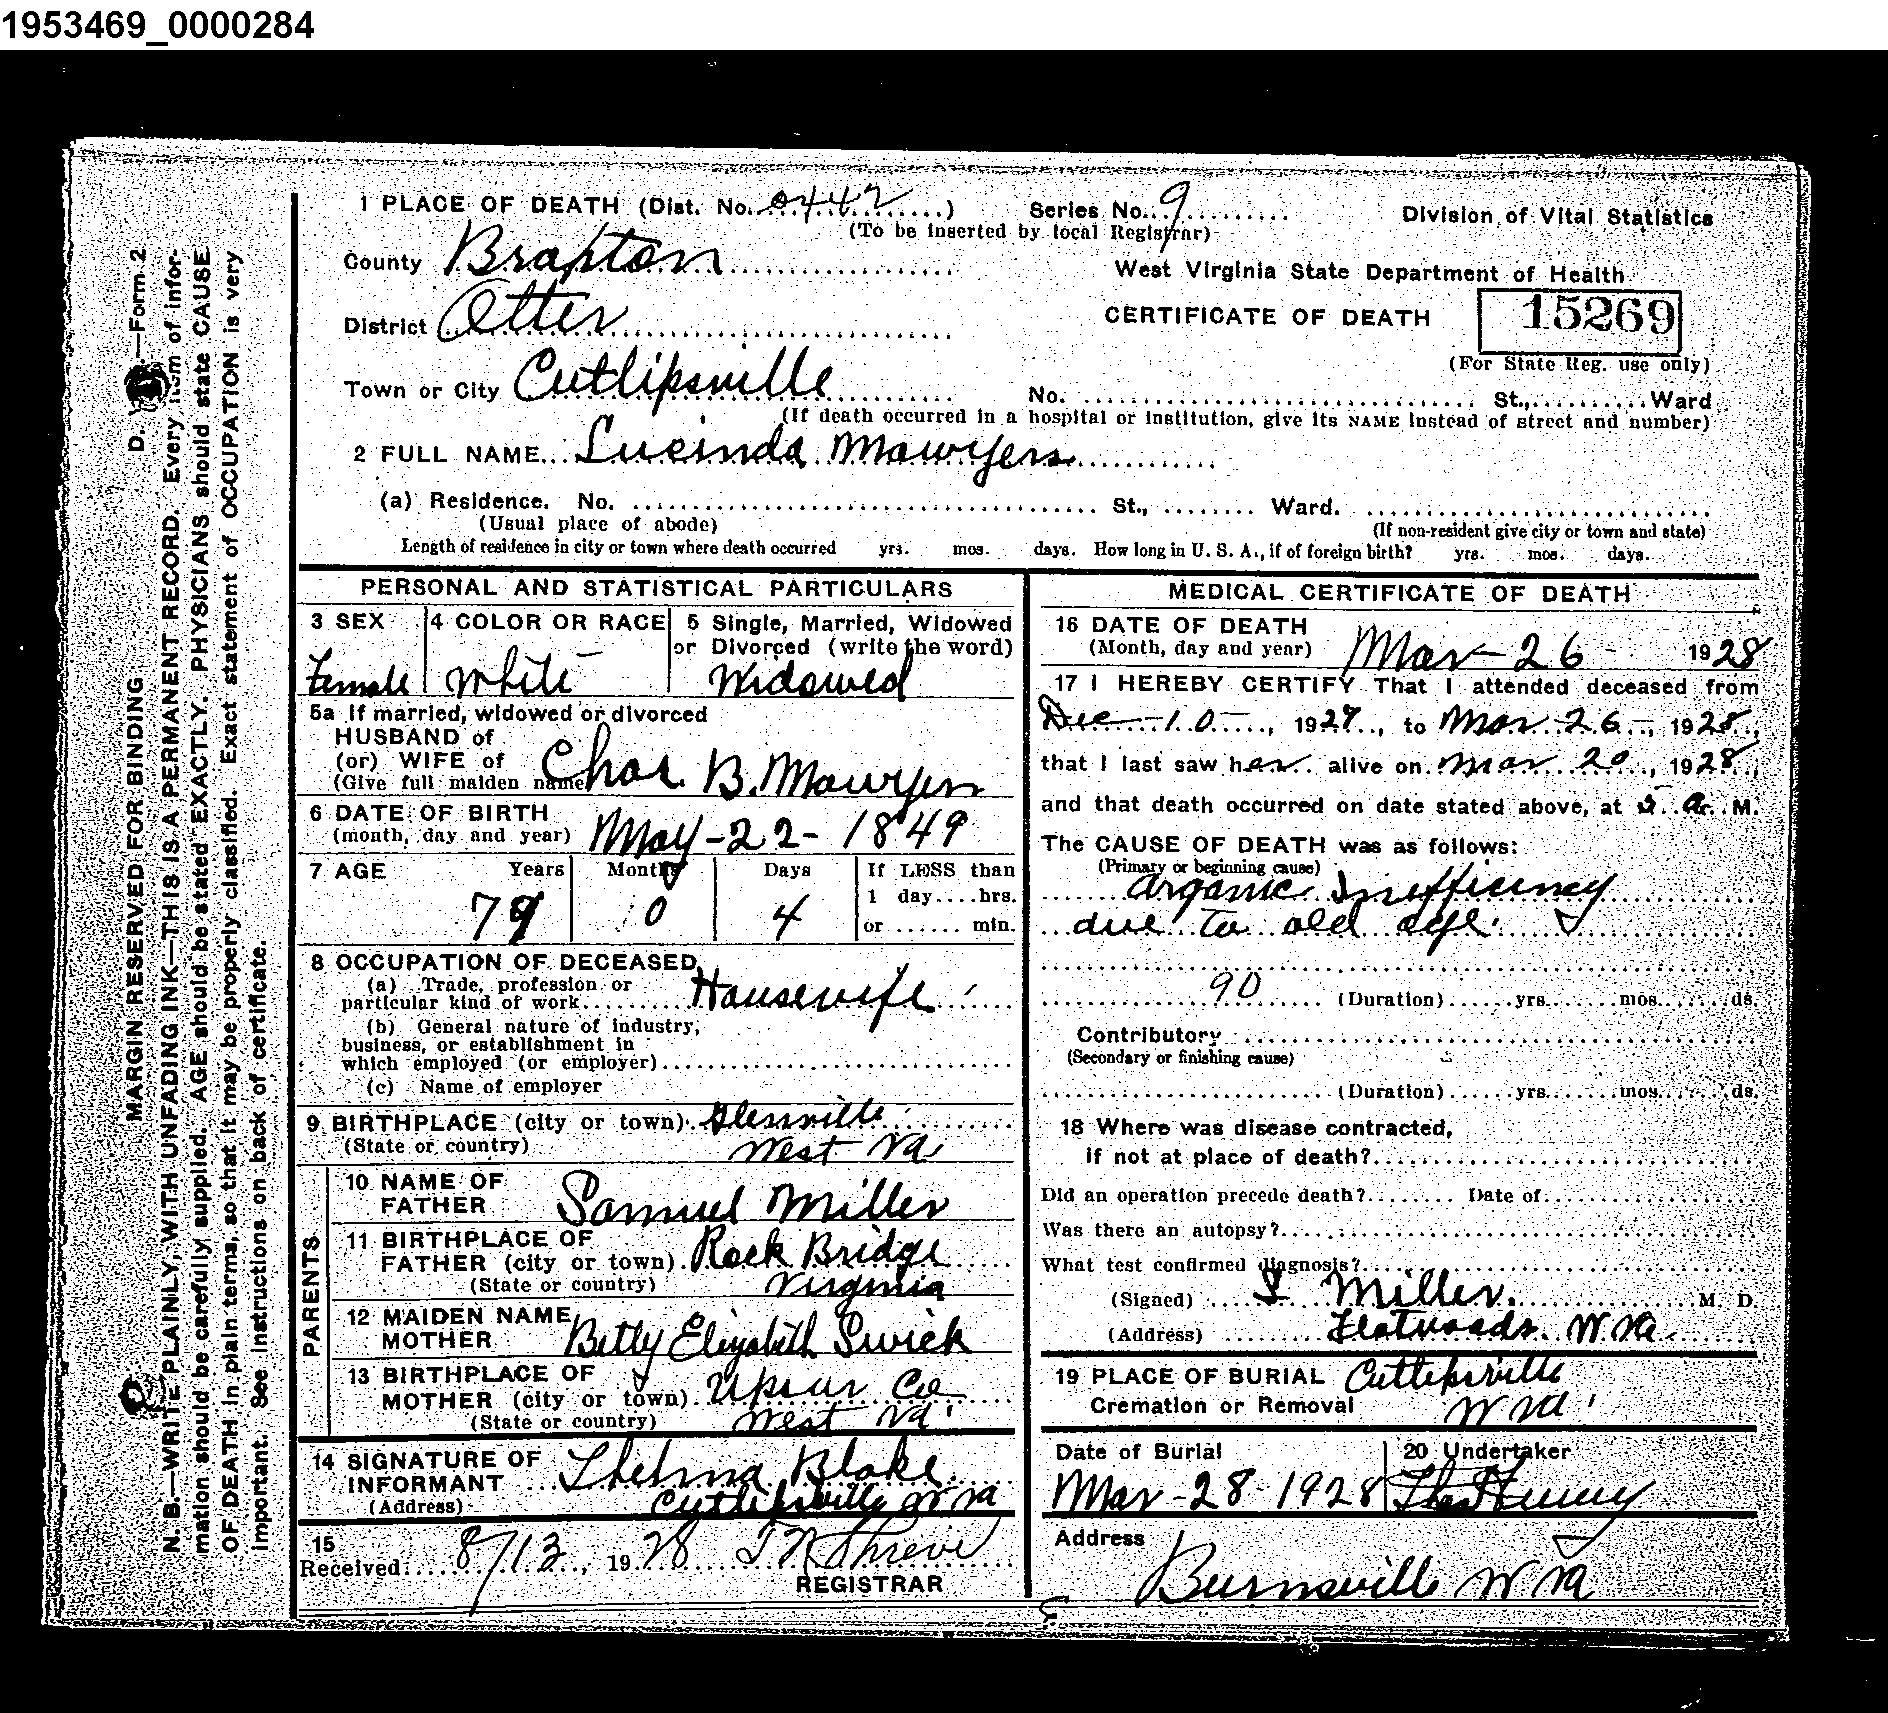 1953469_0000284
1 PLACE OF DEATH (Dist. No. 0442 ) Series No. 9 Division of Vital Statistics
(To be inserted by local Registrar)
County Braxton
West Virginia State Department of Health
District Otter
CERTIFICATE OF DEATH 15269
(For State Reg. use only)
Town or City Cutlipsville No. St., Ward
(If death occurred in a hospital or institution, give its NAME instead of street and number)
2 FULL NAME Lucinda Mawyers
(a) Residence. No. St., Ward.
(Usual place of abode) (If non-resident give city or town and state)
Length of residence in city or town where death occurred yrs. mos. days. How long in U. S. A., if of foreign birth? yrs. mos. days.
PERSONAL AND STATISTICAL PARTICULARS
3 SEX 4 COLOR OR RACE 5 Single, Married, Widowed
or Divorced (write the word)
Female White Widowed
5a If married, widowed or divorced
HUSBAND of
(or) WIFE of
(Give full maiden name) Chas. B. Mawyers
6 DATE OF BIRTH
(month, day and year) May-22-1849
7 AGE Years Months Days If LESS than
1 day....hrs.
79 0 4 or ...... min.
8 OCCUPATION OF DECEASED
(a) Trade, profession or
particular kind of work Housewife
(b) General nature of industry,
business, or establishment in
which employed (or employer)
(c) Name of employer
9 BIRTHPLACE (city or town) Glenville
(State or country) West Va
PARENTS
10 NAME OF
FATHER Samuel Miller
11 BIRTHPLACE OF
FATHER (city or town) Rock Bridge
(State or country) Virginia
12 MAIDEN NAME
MOTHER Betty Elizabeth Swick
13 BIRTHPLACE OF
MOTHER (city or town) Upsur Co
(State or country) West Va
14 SIGNATURE OF
INFORMANT Thelma Blake
(Address) Cutlipsville W Va
15
Received 8/13, 1928
REGISTRAR
MEDICAL CERTIFICATE OF DEATH
16 DATE OF DEATH
(Month, day and year) Mar-26- 1928
17 I HEREBY CERTIFY That I attended deceased from
Dec-10-, 1927, to Mar-26-, 1928,
that I last saw her alive on Mar 20, 1928,
and that death occurred on date stated above, at a. M.
The CAUSE OF DEATH was as follows:
(Primary or beginning cause)
organic Inefficiency
due to old age.
90 (Duration) yrs. mos. ds.
Contributory
(Secondary or finishing cause)
(Duration) yrs. mos. ds.
18 Where was disease contracted,
if not at place of death?
Did an operation precede death? Date of
Was there an autopsy?
What test confirmed diagnosis?
(Signed) Miller. M. D.
(Address) Flatwoods. W Va.
19 PLACE OF BURIAL Cutlipsville
Cremation or Removal W Va
Date of Burial 20 Undertaker
Mar-28-1928
Address
Burnsville W Va
MARGIN RESERVED FOR BINDING. D. —Form 2
N. B.—WRITE PLAINLY, WITH UNFADING INK—THIS IS A PERMANENT RECORD. Every item of infor-
mation should be carefully supplied. AGE should be stated EXACTLY. PHYSICIANS should state CAUSE
OF DEATH in plain terms, so that it may be properly classified. Exact statement of OCCUPATION is very
important. See instructions on back of certificate.